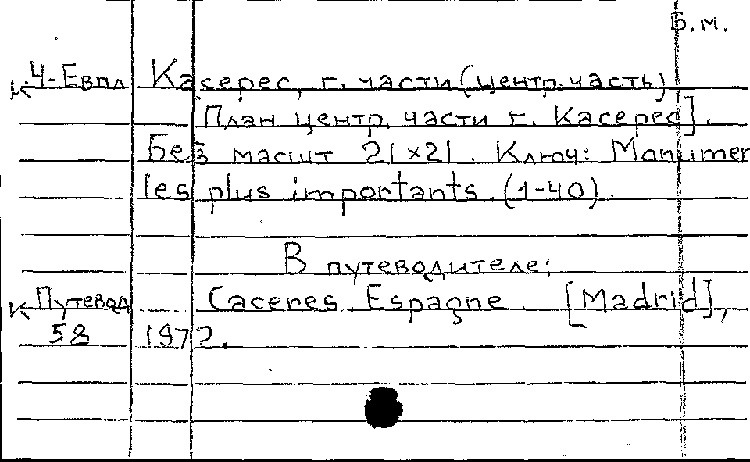 Б.м.
К 4-Евпл Касерес, г. части (центр. часть)
[План центр. части г. Касерес].
Без масшт 21×21. Ключ: Monumen
les plus importants (1-40).
В путеводителе:
К Путевод Caceres Espagne. [Madrid],
58 1972.